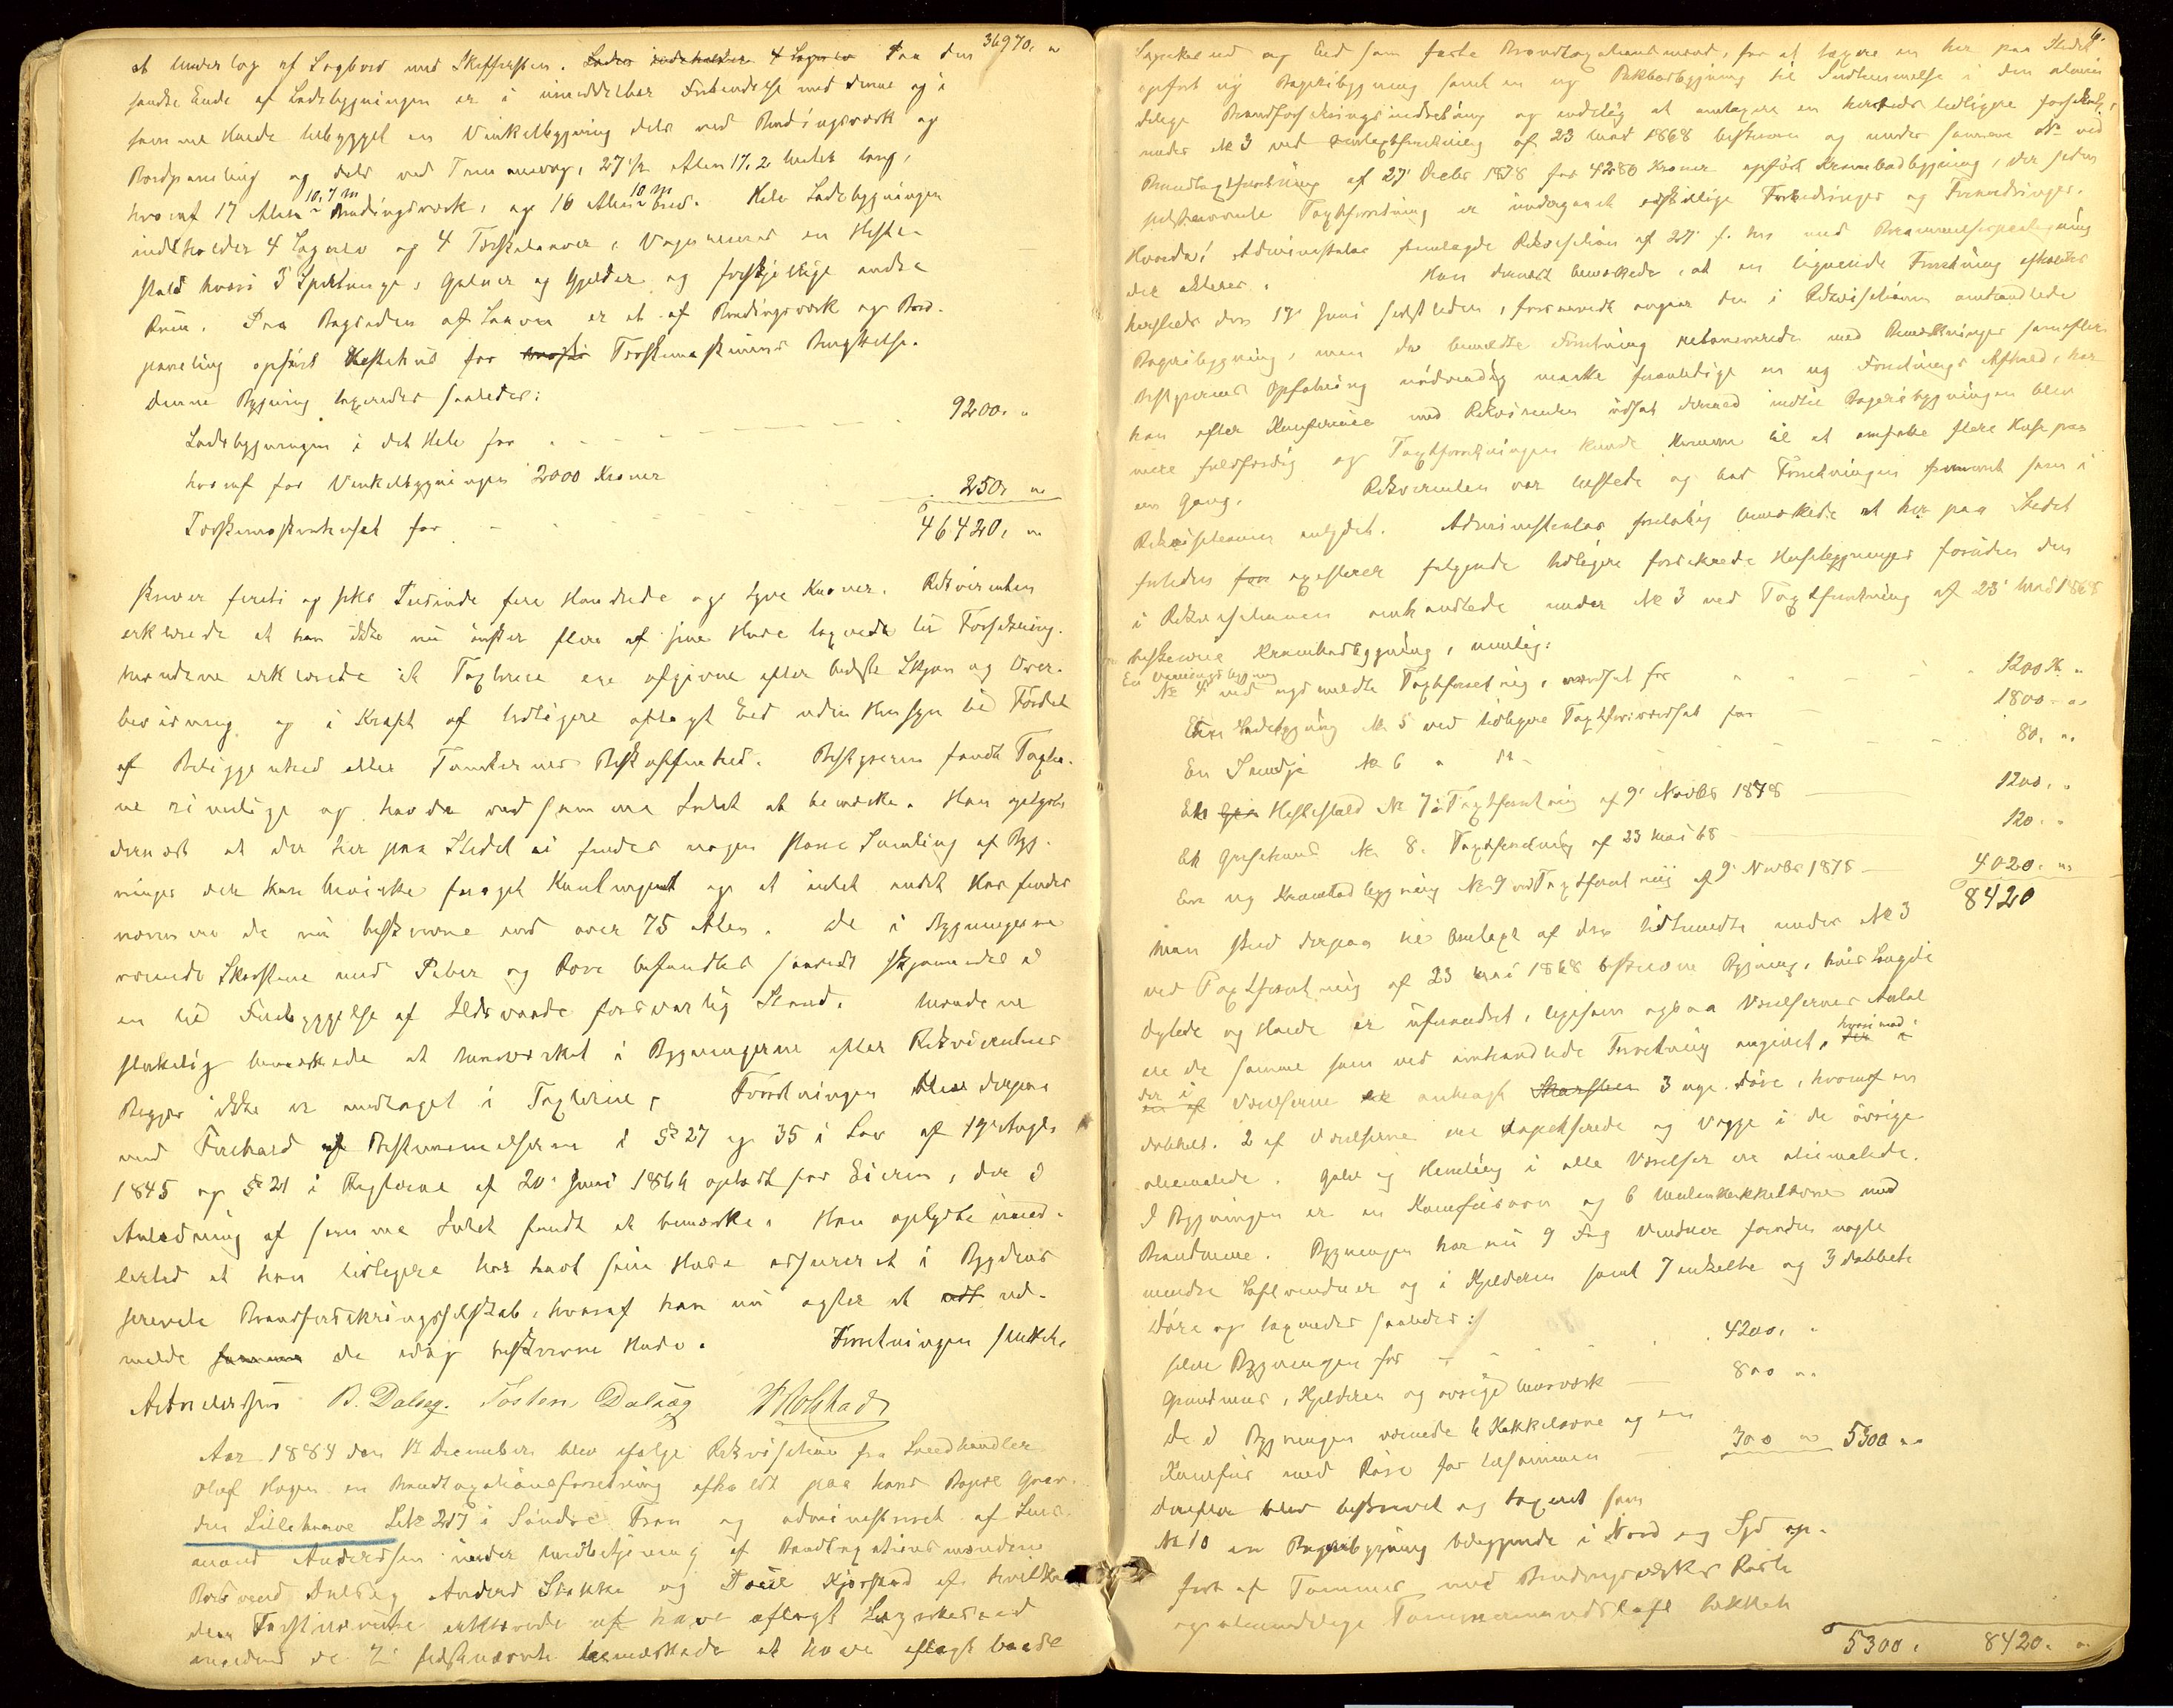 36970. "
et Underlag af Lægbord med Skiffersten. Laden indeholder 4 Lagulv Paa den
søndre Ende af Ladebygningen er i umiddelbar Forbindelse med denne og i
samme Høide tilbygget en Vinkelbygning dels ved Bindingsværk og
Bordpaneling og dels ved Tømmervæg, 27 1/2 Alen 17,2 Meter lang,
hvoraf 17 Alen 10,7 m Bindingsværk, og 16 Alen 10 m bred. Hele Ladebygningen
indeholder 4 Lagulv og 4 Tørskelaaver, Vognremisse en Heste-
stald hvori 3 Spiltauge, Gulver og Gjelder og forskjellige andre
Rum. Paa Bagsiden af Laaven er et af Bindingsværk og Bord-
paneling opført Hestehus for Tærskemaskinens Benyttelse.
Denne Bygning taxeredes saaledes:
Ladebygningen i det Hele for 9200. "
hvoraf for Vinkelbygningen 2000 Kroner
Tærskemaskinhuset for 250, "
46420, "
skriver firti og seks Tusinde fire Hundrede og tyve Kroner. Rekvirenten
erklærede at han ikke nu ønsker flere af sine Huse taxerede til Forsikring.
Mændene erklærede at Taxterne ere afgivne efter bedste Skjøn og Over-
bevisning og i Kraft af tidligere aflagt Eed uden Hensyn til Stedet
af Beliggenhed eller Tomternes Beskaffenhed. Bestyreren fandt Taxter-
ne rimelige og havde ved samme Intet at bemærke. Han oplyste
dernæst at der her paa Stedet ei findes nogen større Samling af Byg-
ninger der kan bevirke forøget Kontingent og at intet andet Hus findes
nærmere de nu beskrevne end over 75 Alen. De i Bygningerne
værende Skorstene med Piber og Rør befandtes saavidt skjønnedes i
en til Forebyggelse af Ildsvaade forsvarlig Stand. Mændene
sluttelig bemærkede at Murværket i Bygningerne efter Rekvirentens
Begjær ikke er medtaget i Taxterne, Forretningen blev derpaa
med Forehold af Bestemmelserne i § 27 og 35 i Lov af 19 Aug.
1845 og § 21 i Reglerne af 20 Juni 1866 oplæst for Eieren, der i
Anledning af samme Intet fandt at bemærke. Han oplyste imid-
lertid at han tidligere har havt sine Huse assureret i Bygdens
private Brandforsikringsselskab, hvoraf han nu agter at ud-
melde samme de idag beskrevne Huse. Forretningen sluttet.
A Andersen B. Dalseg. Tosten Dalseg Holstad
Aar 1884 den 1 December blev ifølge Rekvisition fra Landhandler
Oluf Hagen en Brandtaxationsforretning afholdt paa hans Bopæl Gaar-
den Lillehaave LNo 217 i Søndre Fron og administreret af Lens-
mand Andersen under Medbetjening af Brandtaxationsmændene
Bersvend Dalseg Anders Stokke og Poul Kjørstad af hvilke
den Førstnævnte erklærede at have aflagt Lagrettesed
medens de 2 sidstnævnte bemærkede at have aflagt baade
6.
Lagrettesed og Eed som faste Brandtaxationsmænd, for at taxere en her paa Stedet
opført ny Bageribygning samt en ny Pakbodbygning til Indlemmelse i den almin-
delige Brandforsikringsindretning og endelig at omtaxere en hersteds tidligere forsikret,
under No 3 ved Omtaxtforretning af 23 Mai 1868 beskreven og under samme No ved
Brandtaxtforretning af 27 Decbr 1878 for 4280 Kroner opført Krambodbygning, der siden
sidstnævnte Taxtforretning er undergaaet adskillige Forbedringer og Forandringer.
Hvorda! Administrator fremlagde Rekvisition af 27 f. M. med Berammelsespaategning
der akteres. Han dernæst bemærkede, at en lignende Forretning afholdtes
hersteds den 17 Juni sidstleden, forsaavidt angaar den i Rekvisitionen omhandlede
Bageribygning, men da bemeldte Forretning returneredes med Bemærkninger som efter
Bestyrerens Opfatning nødvendig maatte foranledige en ny Forretnings Afhold, har
han efter Konference med Rekvirenten udsat dermed indtil Bageribygningen blev
mere fuldfærdig og Taxtforretningen kunde komme til at omfatte flere Huse paa
en Gang. Rekvirenten var tilstede og bad Forretningen fremmet som i
Rekvisitionen antydet. Administrator foreløbig bemærkede at her paa Stedet
forinden for existerer følgende tidligere forsikrede Husebygninger foruden den
i Rekvisitionen omhandlede under No 3 ved Taxtforretning af 23 Mai 1868
beskrevne Krambodbygning, nemlig:
En Vaaningsbygning
No 4 ved nysmeldte Taxtforretning, værdsat for 1200 Kr "
En Ladebygning No 5 ved tidligere Taxtforr. værdsat for 1800 "
En Smedje No 6 " do 80. "
En Hestestald No 7 i Taxtforretning af 9 Novbr 1878 1200. "
Et Grisehuus No 8. Taxtforretning af 23 Mai 68 120. "
En ny Krambodbygning No 9 ved Taxtforretning af 9 Novbr 1878 4020. "
8420
Man skred derpaa til Omtaxt af den tidtnævnte under No 3
ved Taxtforretning af 23 Mai 1868 beskrevne Bygning, hvis Længde
Dybde og Høide er uforandret, ligesom ogsaa Værelsernes Antal
ere de samme som ved omhandlede Forretning angivet, hvorimod
der i Værelserne er anbragt Skorsten 3 nye Døre, hvoraf en
dobbelt. 2 af Værelserne ere tapetserede og Vægge i de øvrige
oliemalede. Gulv og Himling i alle Værelser ere oliemalede.
I Bygningen er en Komfurovn og 6 Kakkelovne med
Brandmure. Bygningen har nu 9 Fag Vinduer foruden nogle
mindre Loftvinduer og i Kjelderen samt 7 enkelte og 3 dobbelte
Døre og taxeredes saaledes:
selve Bygningen for 4200. "
Grundmur, Kjelderen og øvrige Murværk 800 "
De i Bygningen værende 6 Kakkelovne og en
Komfur med Rør for tilsammen 300 " 5300 "
Derefter blev beskrevet og taxeret som
No 10 en Bageribygning beliggende i Nord og Syd op-
ført af Tømmer med Bindingsværks Røst
og almindelige Tømmermandsloft tækket
5300. 8420. "